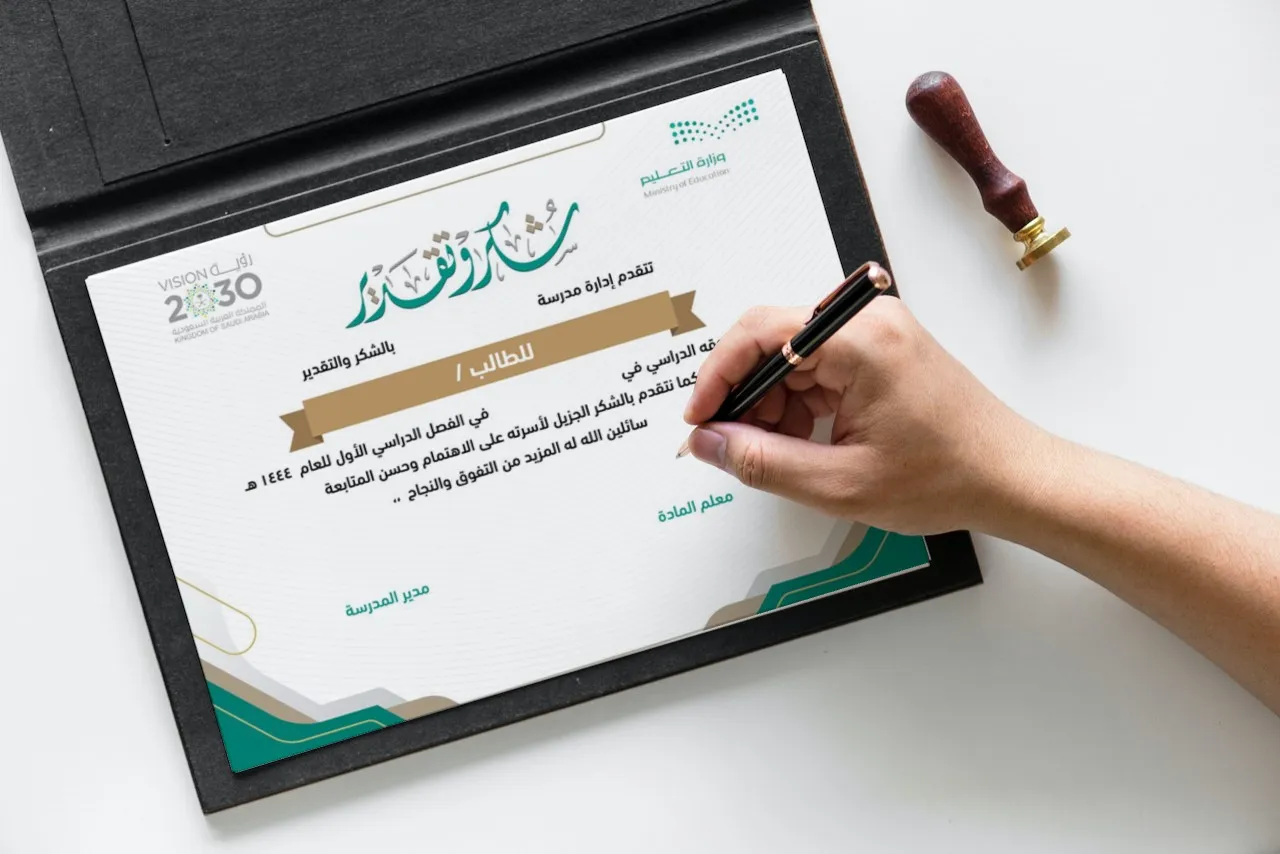 وزارة التعـــليم
Ministry of Education
رؤيــة VISION
2030
المملكة العربية السعودية
KINGDOM OF SAUDI ARABIA
شكر وتقدير
تتقدم إدارة مدرسة
بالشكر والتقدير
للطالب /
الدراسي في
في الفصل الدراسي الأول للعام ١٤٤٤ هـ
كما نتقدم بالشكر الجزيل لأسرته على الاهتمام وحسن المتابعة
سائلين الله له المزيد من التفوق والنجاح ,,
معلم المادة
مدير المدرسة